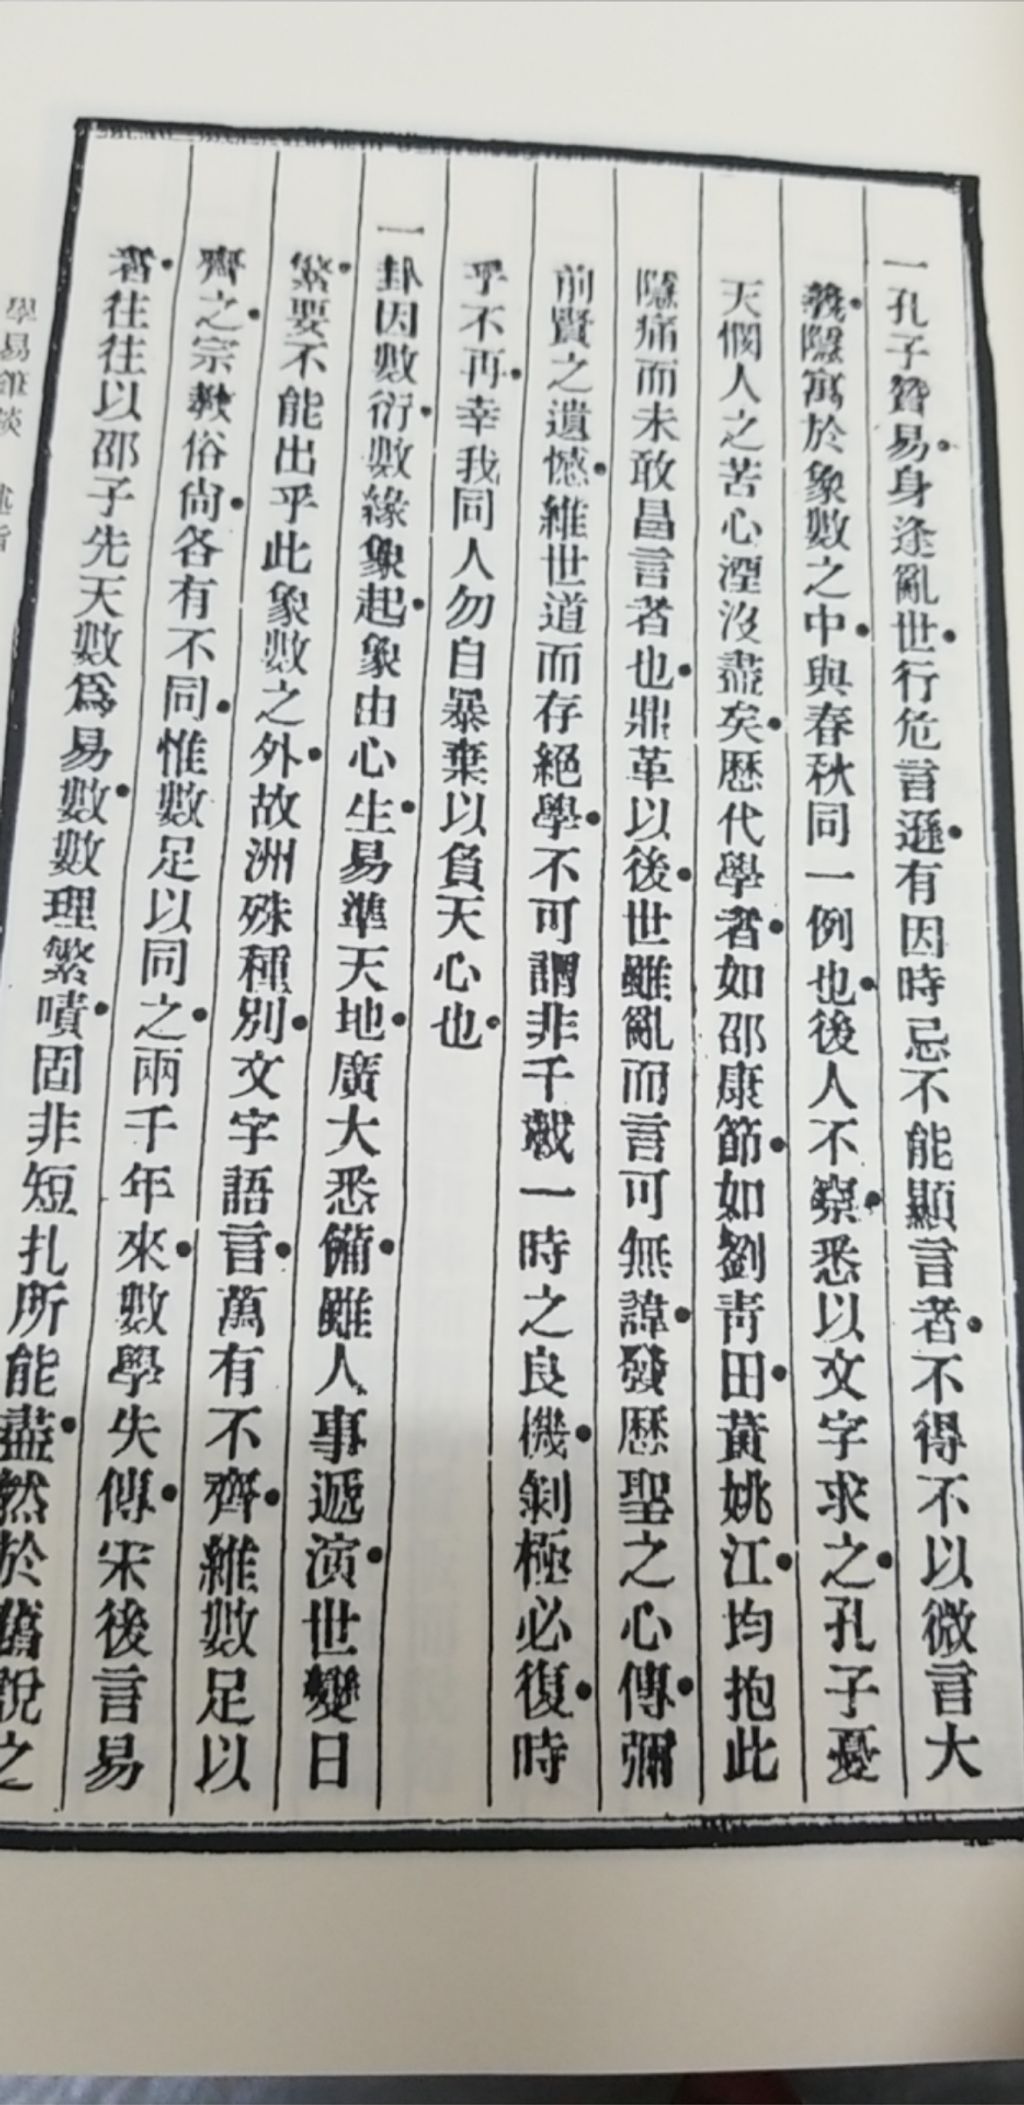 一孔子贊易身逢亂世行危言遜有因時忌不能顯言者不得不以微言大
義隱寓於象數之中與春秋同一例也後人不察悉以文字求之孔子憂
天憫人之苦心湮沒盡矣歷代學者如邵康節如劉青田黃姚江均抱此
隱痛而未敢昌言者也鼎革以後世雖亂而言可無諱發歷聖之心傳彌
前賢之遺憾維世道而存絕學不可謂非千載一時之良機剝極必復時
乎不再幸我同人勿自暴棄以負天心也
一卦因數衍數緣象起象由心生易準天地廣大悉備雖人事遞演世變日
繁要不能出乎此象數之外故洲殊種別文字語言萬有不齊維數足以
齊之宗教俗尚各有不同惟數足以同之兩千年來數學失傳宋後言易
者往往以邵子先天數為易數數理繁嘖固非短扎所能盡然於舊說之
學易雜談 述旨